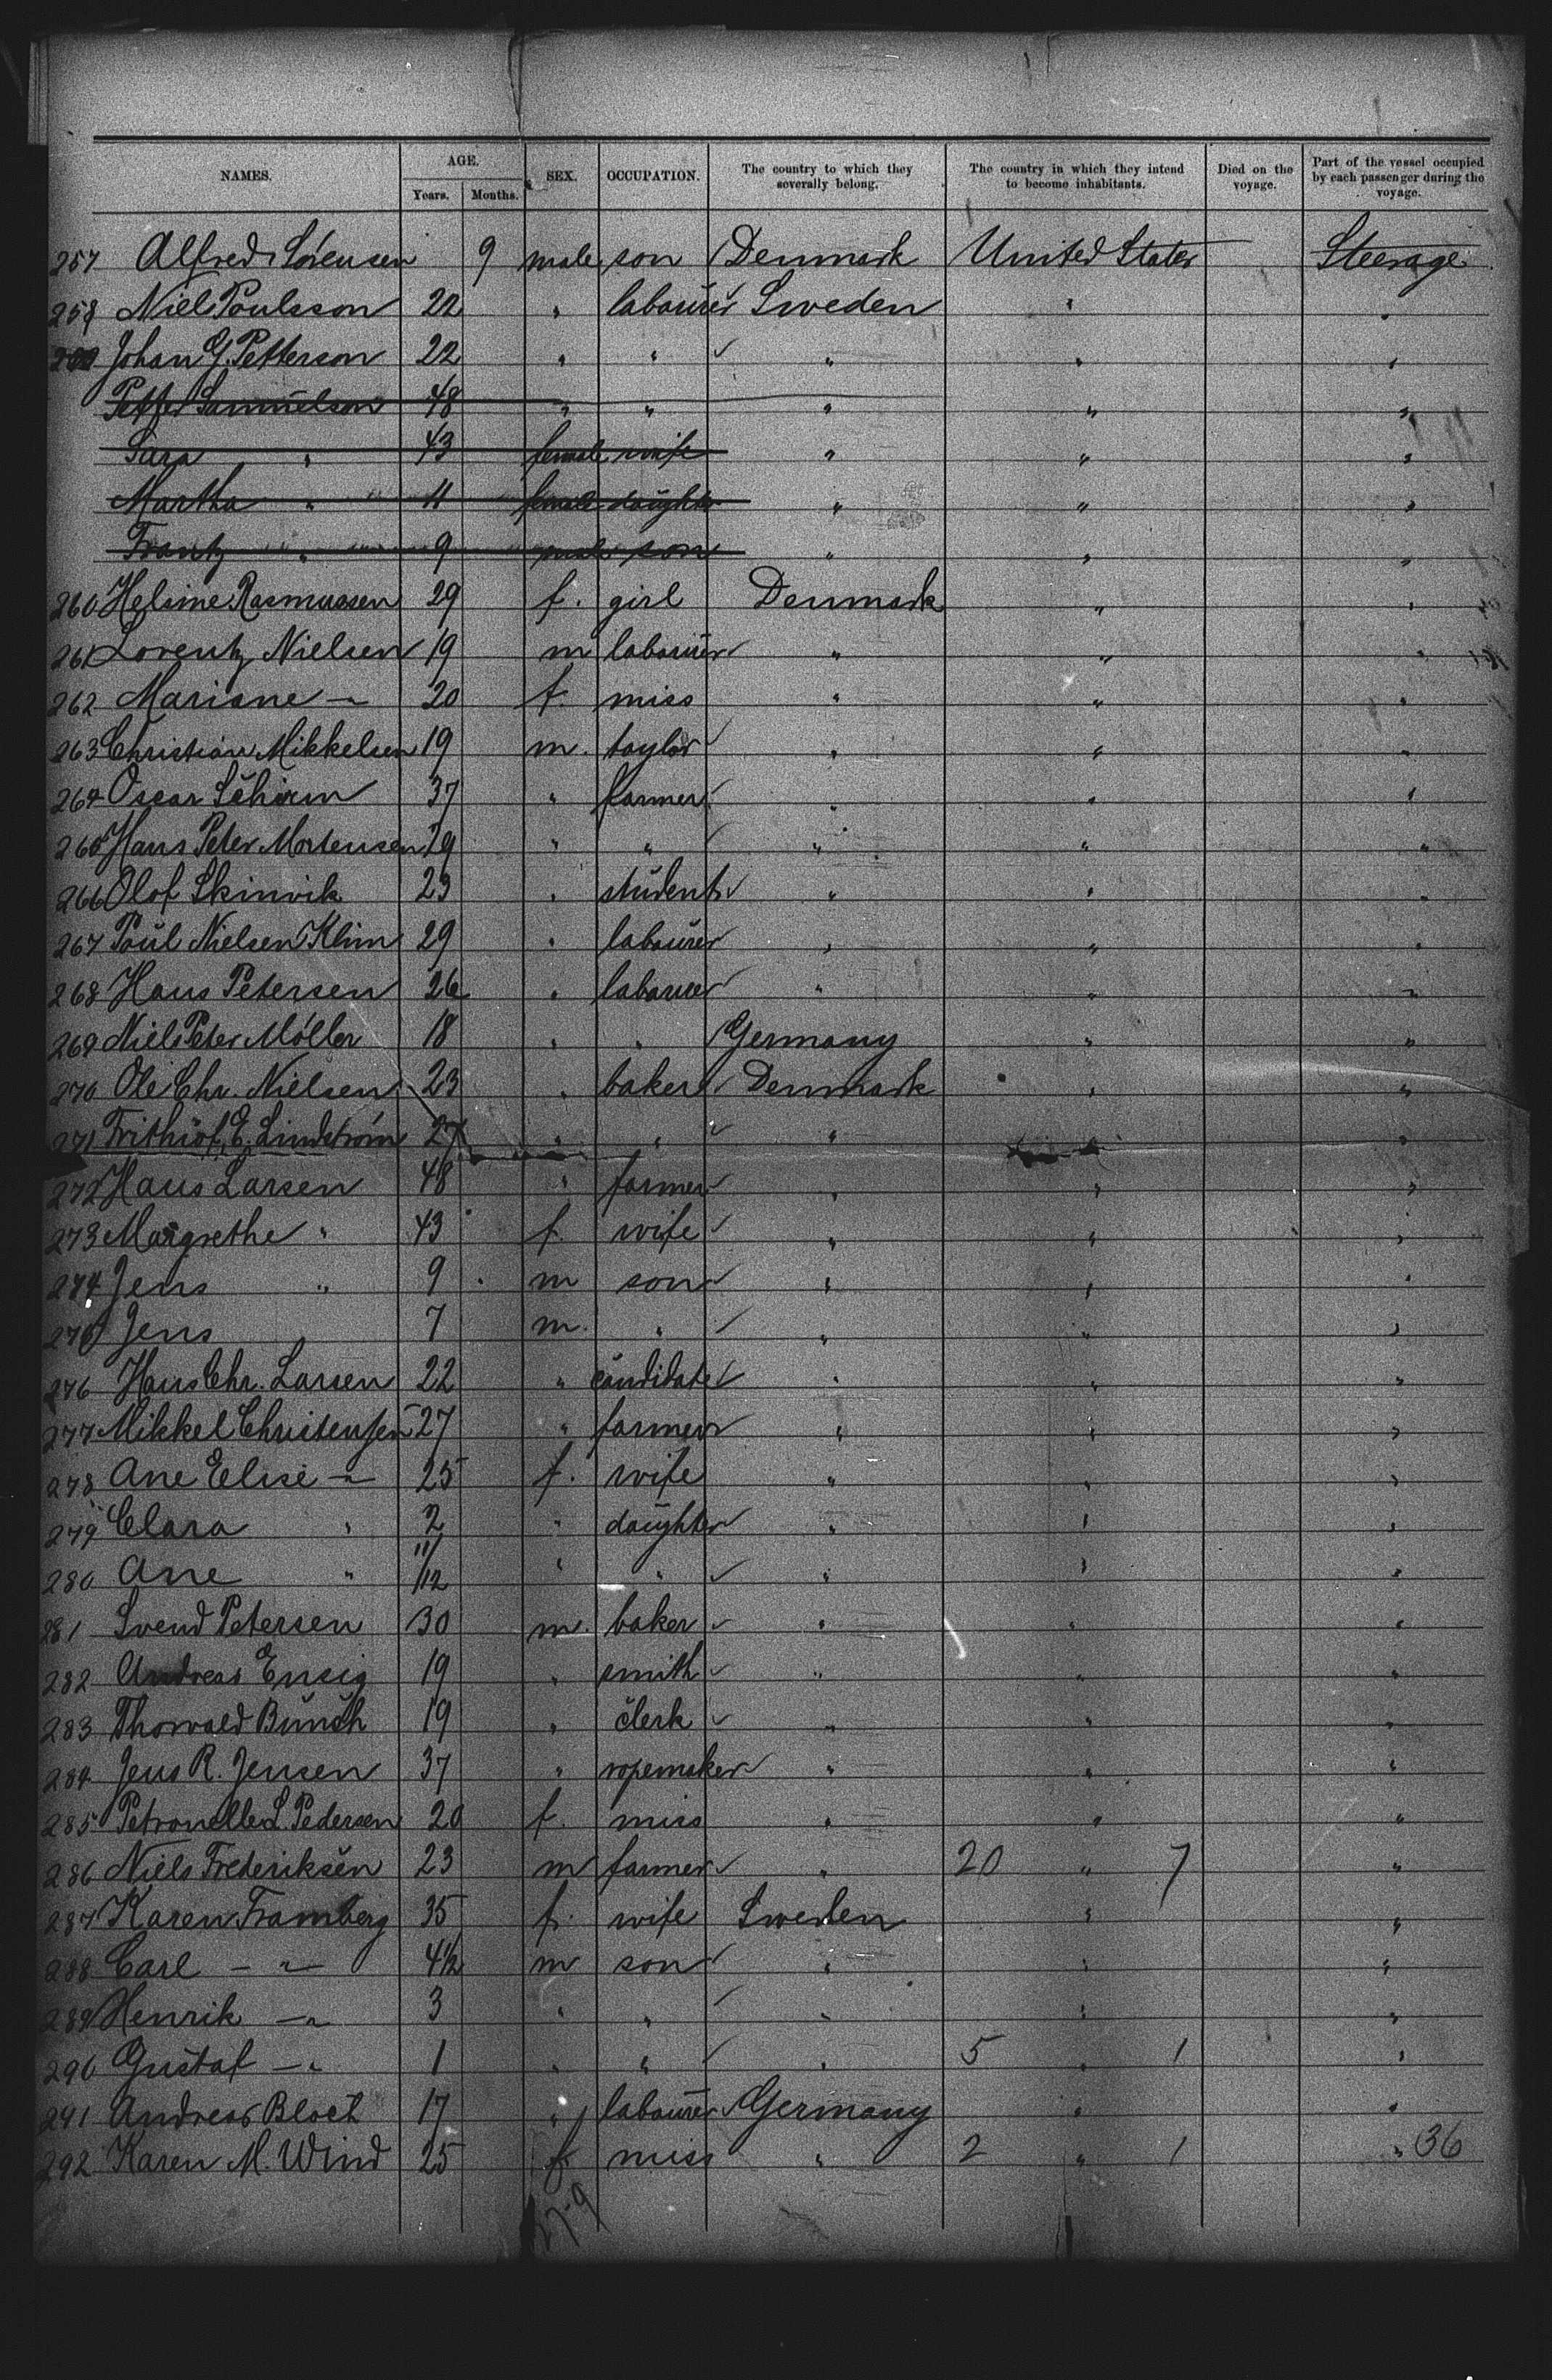 NAMES. AGE. Years. Months. SEX. OCCUPATION. The country to which they severally belong. The country in which they intend to become inhabitants. Died on the voyage. Part of the vessel occupied by each passenger during the voyage.
257 Alfred Sörensen 9 male son Denmark United States Steerage
258 Niels Poulsson 22 " labourer Sweden " "
Johan G. Petterson 22 " " " " "
Petter Samuelson 48 " " " " "
Sara " 43 female wife " " "
Martha " 11 female daughter " " "
Frantz " 9 male son " " "
260 Helsine Rasmussen 29 f. girl Denmark " "
261 Lorentz Nielsen 19 m labourer " " "
262 Mariane " 20 f. miss " " "
263 Christian Mikkelsen 19 m. taylor " " "
264 Oscar Schirm 37 " farmer " " "
265 Hans Peter Mortensen 29 " " " " "
266 Olof Skinvik 23 " student " " "
267 Poul Nielsen Klim 29 " labourer " " "
268 Hans Petersen 26 " labourer " " "
269 Niels Peter Möller 18 " " Germany " "
270 Ole Chr. Nielsen 23 " baker Denmark " "
271 Frithiof E. Lindström 27 " " " " "
272 Hans Larsen 48 " farmer " " "
273 Margrethe " 43 f. wife " " "
274 Jens " 9 m son " " "
275 Jens 7 m. " " " "
276 Hans Chr. Larsen 22 " candidate " " "
277 Mikkel Christensen 27 " farmer " " "
278 Ane Elise " 25 f. wife " " "
279 Clara " 2 " daughter " " "
280 Ane " 11/12 " " " " "
281 Svend Petersen 30 m. baker " " "
282 Andreas Ensig 19 " smith " " "
283 Thorvald Bunch 19 " clerk " " "
284 Jens R. Jensen 37 " ropemaker " " "
285 Petronelle L. Pedersen 20 f. miss " " "
286 Niels Frederiksen 23 m farmer " 20 " 7 "
287 Karen Framberg 35 f. wife Sweden " "
288 Carl " 4 1/2 m son " " "
289 Henrik " 3 " " " " "
290 Gustaf " 1 " " " 5 " 1 "
291 Andreas Bloch 17 " labourer Germany " "
292 Karen M. Wind 25 f. miss " 2 " 1 " 36